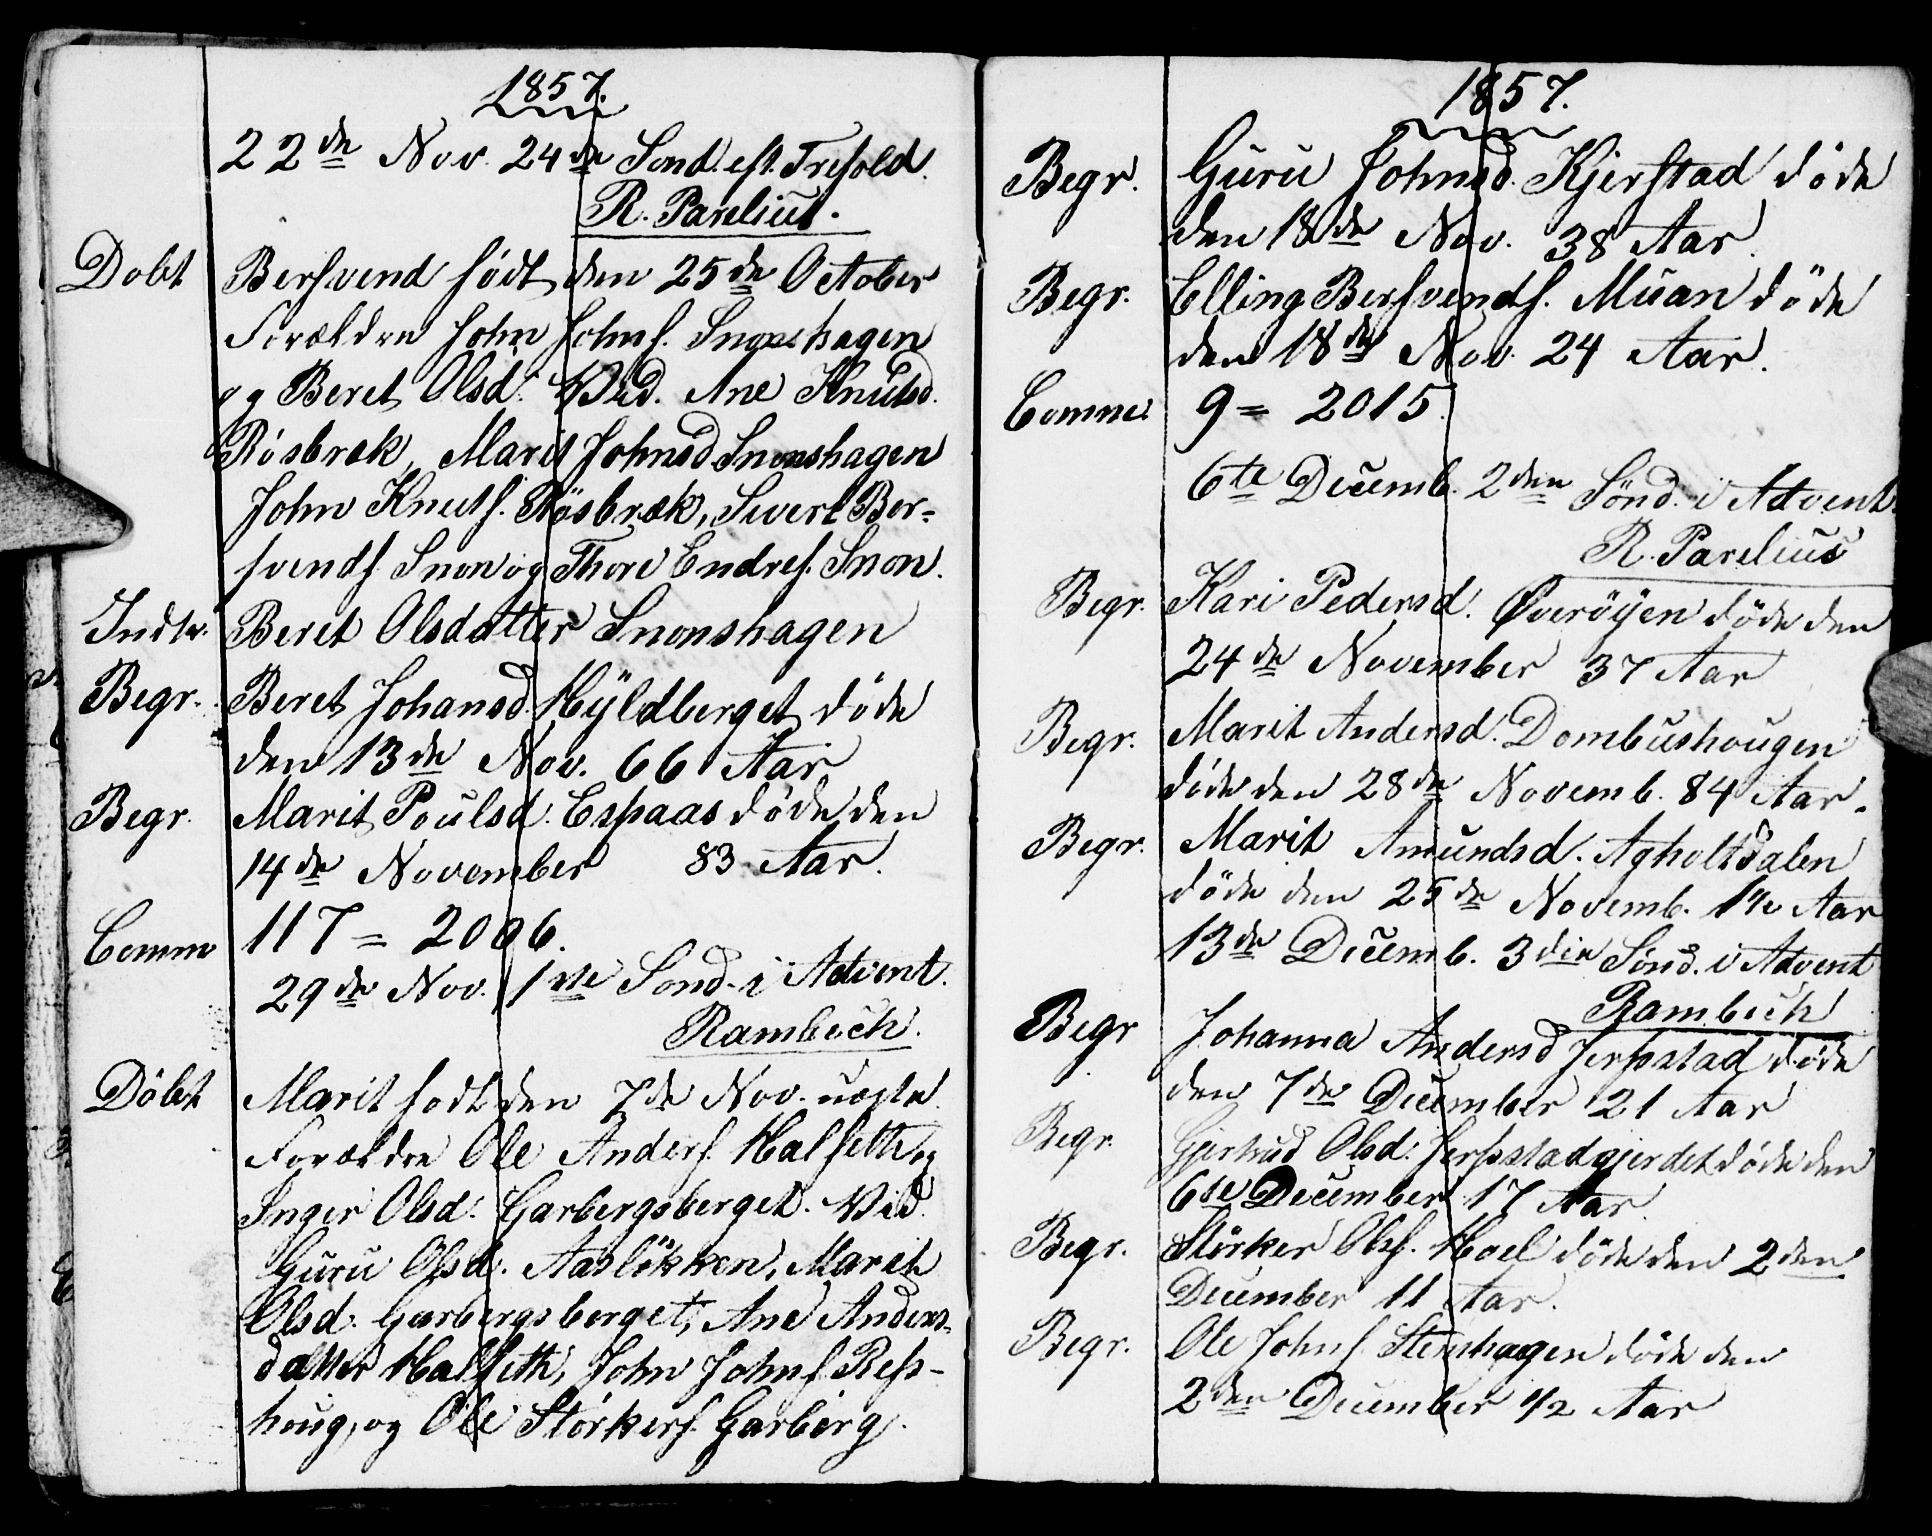 1857.
22de Nov. 24de Sønd. eft. Trefold.
R. Parelius.
Døbt Bersvend født den 25de October
Forældre John Johns. Snonshagen
og Beret Olsd. Vid. Ane Knutsd.
Røsbræk, Marit Johnsd Snonshagen
John Knuts. Røsbræk, Sivert Ber-
svends. Snon og Thore Endres. Snon.
Indtr. Beret Olsdatter Snonshagen
Begr. Beret Johansd. Hÿldberget døde
den 13de Nov. 66 Aar
Begr. Marit Poulsd. Espaas døde den
14de November 83 Aar.
Comm 117 = 2006.
29de Nov. 1ste Sønd. i Advent.
Rambech.
Døbt Marit født den 7de Nov. uægte
Forældre Ole Anders. Halseth og
Inger Olsd. Garbergsberget. Vid.
Guru Olsd. Aasløkken, Marit
Olsd. Garbergsberget, Ane Anders-
datter Halseth, John Johns. Ress-
houg, og Ole Størkers. Garberg.
1857.
Begr. Guru Johnsd. Kjerstad døde
den 18de Nov. 38 Aar.
Begr. Elling Bersvends. Muan døde
den 18de Nov. 24 Aar.
Comm. 9 = 2015.
6te Decemb. 2den Sønd. i Advent.
R. Parelius
Begr. Kari Pedersd. Øverøÿen døde den
24de November 37 Aar
Begr. Marit Andersd. Dombushougen
døde den 28de Novemb. 84 Aar.
Begr. Marit Amundsd. Agholtdalen
døde den 25de Novemb. Aar
13de Decemb. 3die Sønd. i Advent
Rambech
Begr Johanna Andersd Jerpstad døde
den 7de December 21 Aar
Begr. Gjertrud Olsd. Jerpstadgjerdet døde den
6te December 17 Aar.
Begr. Størker Ols. Hoel døde den 2den
December 11 Aar.
Begr. Ole Johns. Stenshagen døde den
2den December 1/2 Aar